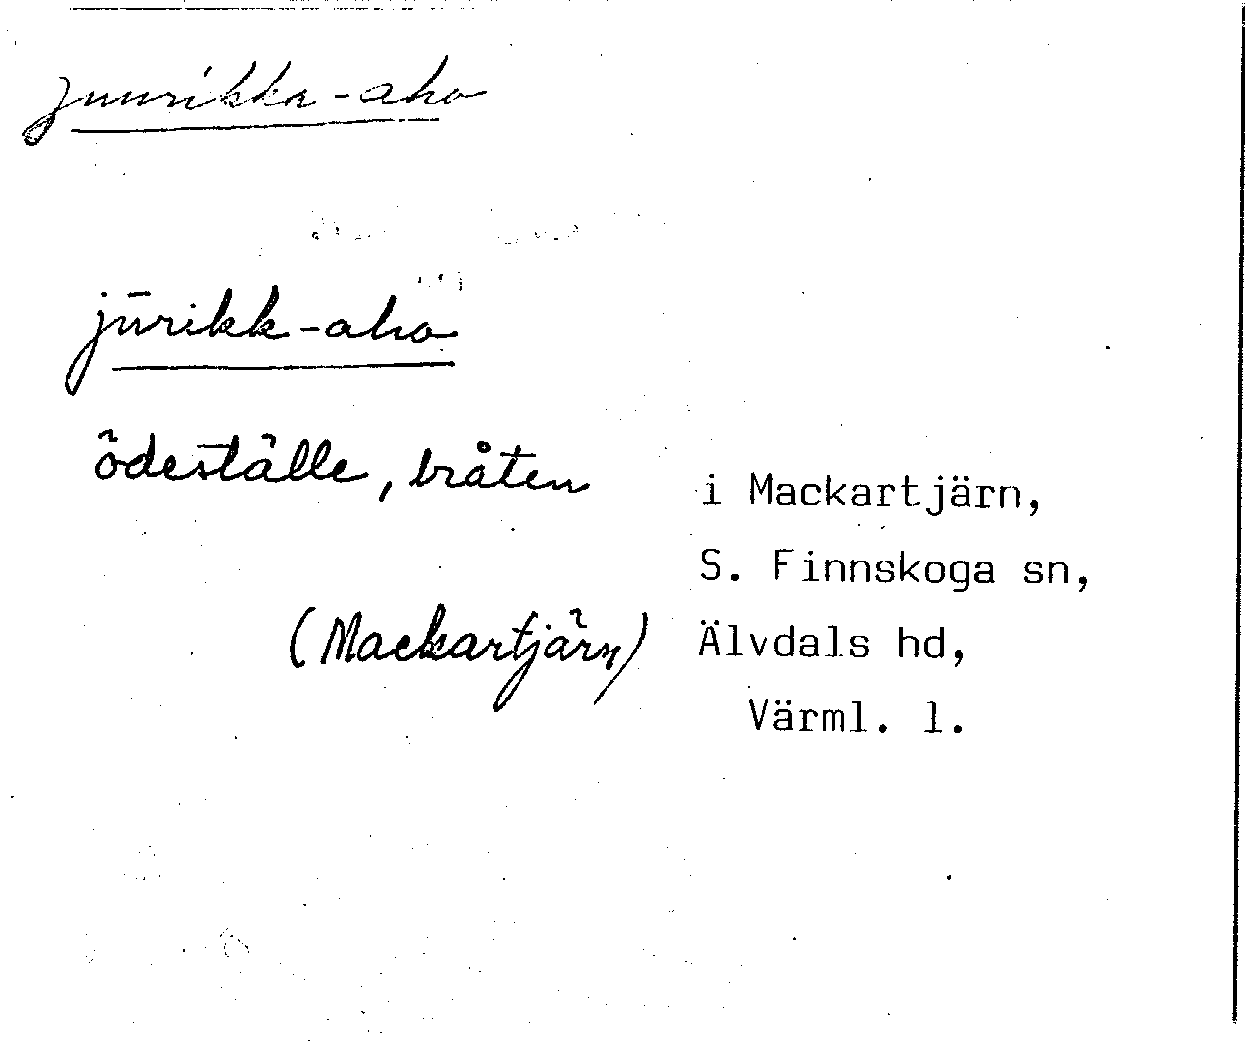 juurikka-aho
jūrikk-aho
ödeställe, bråten
i Mackartjärn,
S. Finnskoga sn,
(Mackartjärn)
Älvdals hd,
Värml. l.